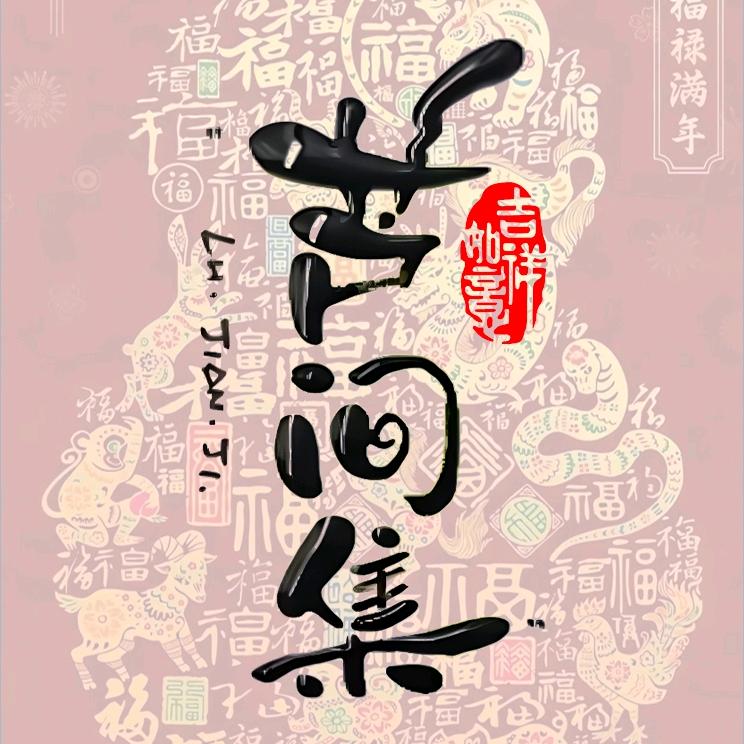 福禄满年
芦间集
LU.JIAN.JI.
吉祥
如意